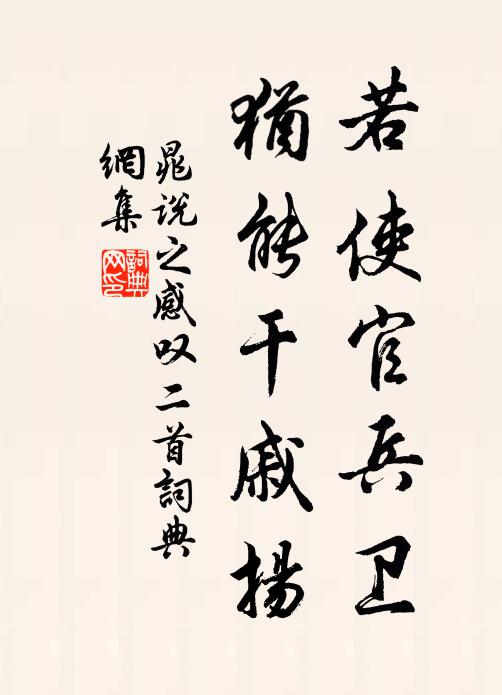 若使官兵卫
猶能干戚揚
晁说之感叹二首詞典
網集
詞典网印